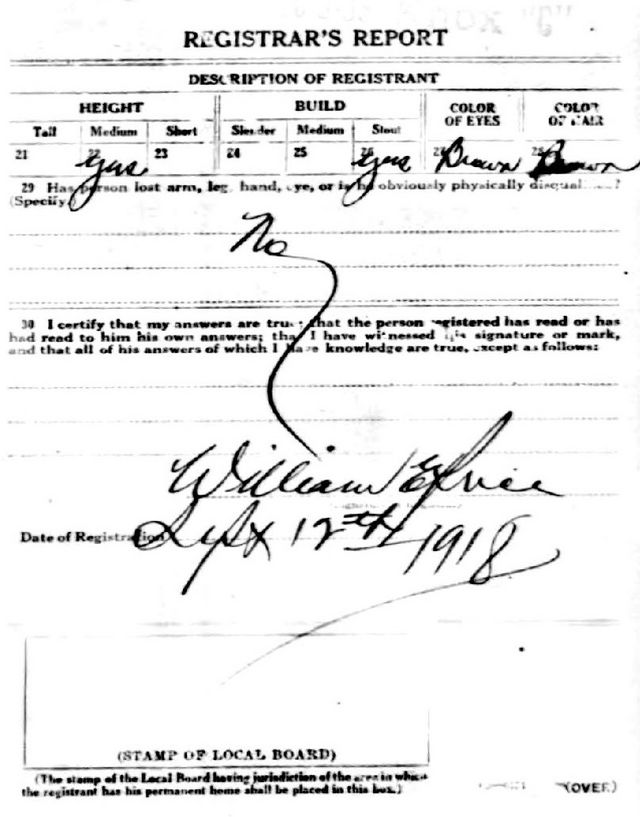 REGISTRAR'S REPORT
DESCRIPTION OF REGISTRANT
HEIGHT BUILD COLOR OF EYES COLOR OF HAIR
Tall Medium Short Slender Medium Stout
21 22 yes 23 24 25 26 yes 27 Brown 28 Brown
29 Has person lost arm, leg, hand, eye, or is he obviously physically disqualified?
(Specify.)
No
30 I certify that my answers are true; that the person registered has read or has
had read to him his own answers; that I have witnessed his signature or mark,
and that all of his answers of which I have knowledge are true, except as follows:
William
Date of Registration Sept 12th 1918
(STAMP OF LOCAL BOARD)
(The stamp of the Local Board having jurisdiction of the area in which
the registrant has his permanent home shall be placed in this box.)
(OVER)